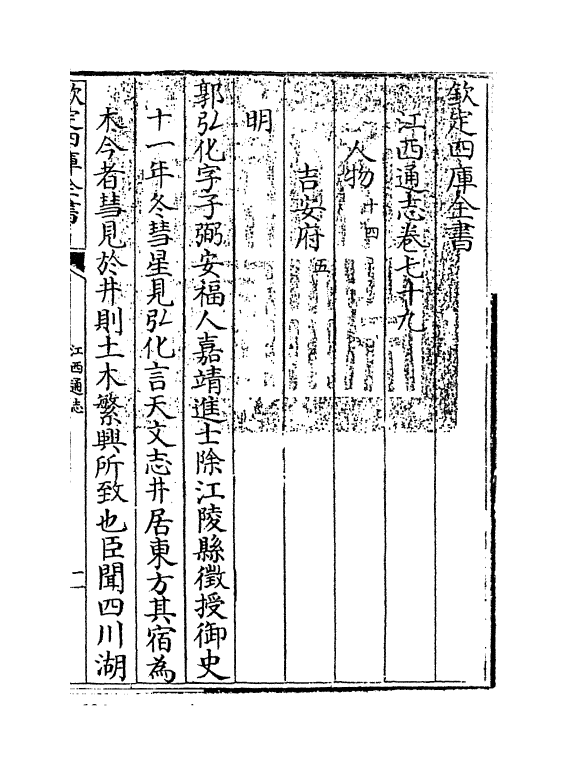 欽定四庫全書
江西通志卷七十九
人物十四
吉安府五
明
郭弘化字子弼安福人嘉靖進士除江陵縣徵授御史
十一年冬彗星見弘化言天文志井居東方其宿為
木今者彗見於井則土木繁興所致也臣聞四川湖
欽定四庫全書
江西通志